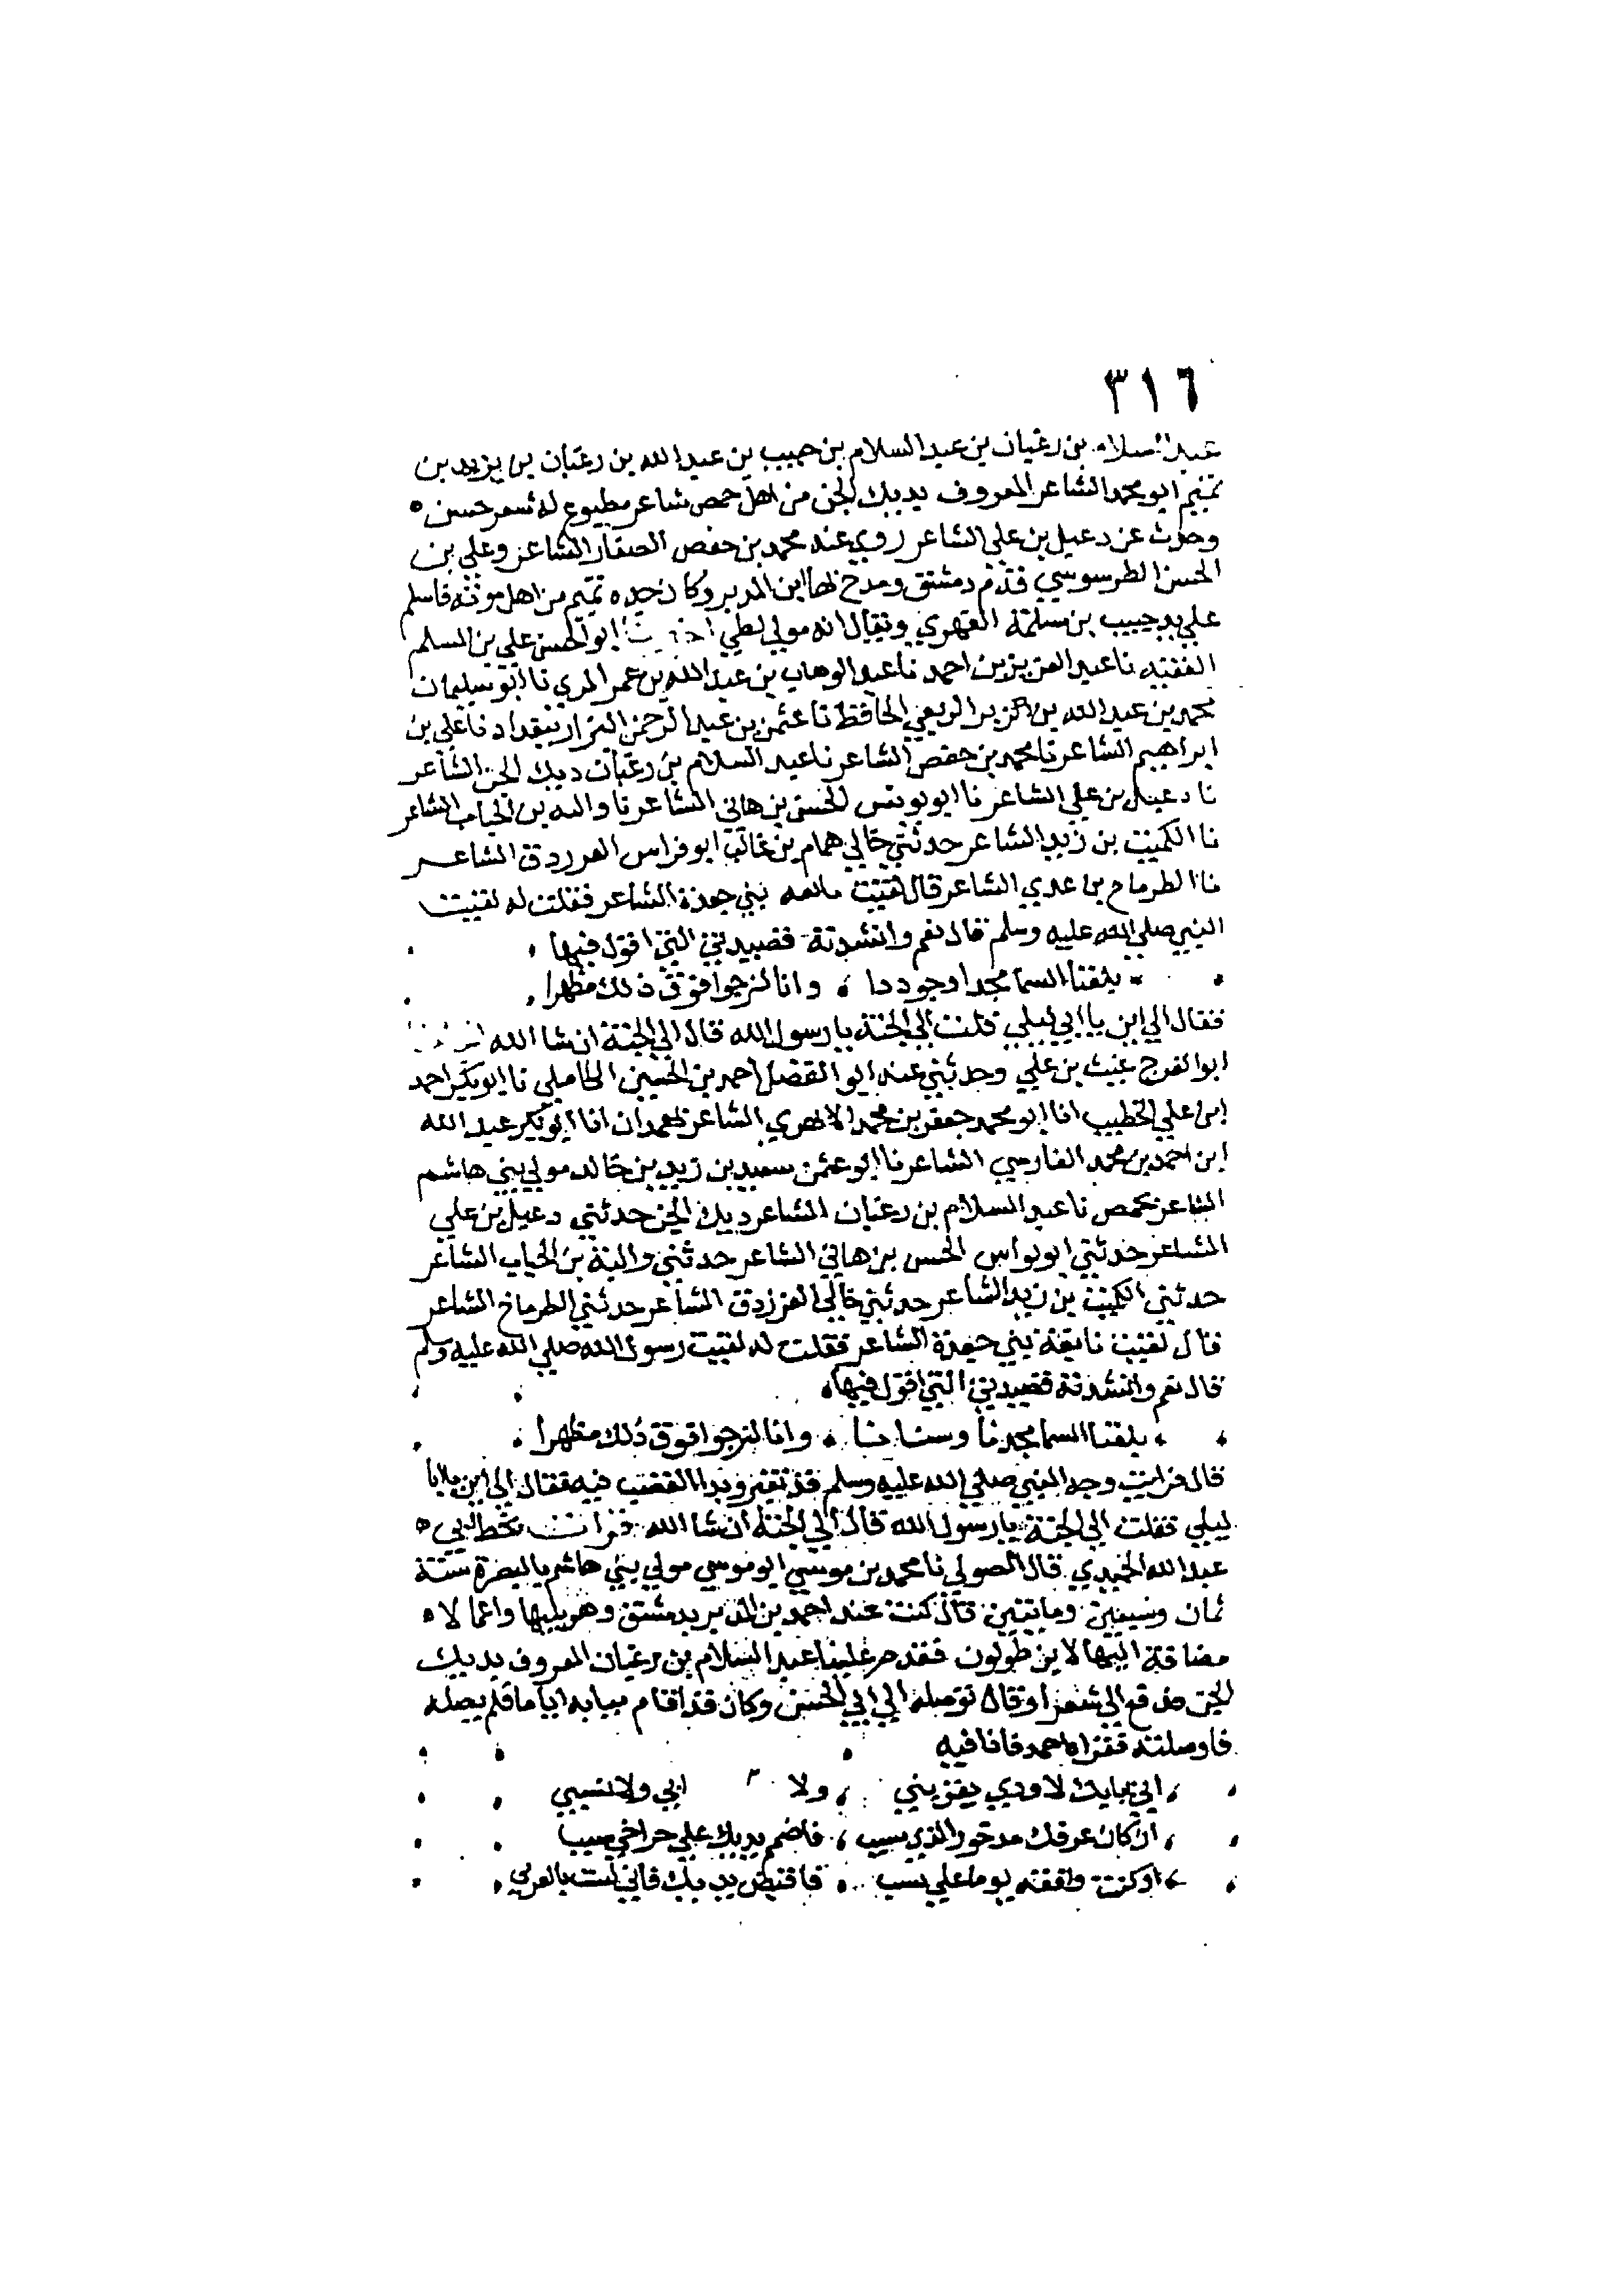 ٣١٦
عبد السلام بن رغبان بن عبد السلام بن حبيب بن عبد الله بن رغبان بن يزيد بن
تميم ابو محمد الشاعر المعروف بديك الجن من اهل حمص شاعر مطبوع له شعر حسن ه
وحدث عن دعبل بن علي الشاعر روي عنه محمد بن حفص الصفار الشاعر وعلي بن
الحسن الطرسوسي قدم دمشق ومدح بها ابن المدبر وكان جده تميم من اهل موته فاسلم
علي يد حبيب بن مسلمة الفهري ويقال انه مولي لطي ابو الحسن علي بن المسلم
الفقيه نا عبد العزيز بن احمد نا عبد الوهاب بن عبد الله بن عمر المري نا ابو سليمان
محمد بن عبد الله بن الربعي الحافظ نا عثمن بن عبد الرحمن البزار ببغداد نا علي بن
ابراهيم الشاعر نا محمد بن حفص الشاعر نا عبد السلام بن رغبان ديك الجن الشاعر
نا دعبل بن علي الشاعر نا ابو يونس الحسن بن هاني الشاعر نا والبه بن الحباب الشاعر
نا الكميت بن زيد الشاعر حدثني خالي همام بن غالب ابو فراس الفرزدق الشاعر
نا الطرماح بن عدي الشاعر قال لقيت بني جعدة الشاعر فقلت له لقيت
النبي صلي الله عليه وسلم قال نعم وانشدته قصيدتي التي اقول فيها
بلغنا السما مجدا وجوددا وانا لنرجوا فوق ذلك مظهرا
فقال الي اين يا ابي ليلي قلت الي الجنة يا رسول الله قال الي الجنة ان شا الله
ابو الفرج غيث بن علي وحدثني عنه ابو الفضل احمد بن الحسين الكاملي نا ابو بكر احمد
ابن علي الخطيب انا ابو محمد جعفر بن محمد الابهري الشاعر بهمدان انا ابو بكر عبد الله
ابن احمد بن محمد الفارسي الشاعر نا ابو عثمن سعيد بن زيد بن خالد مولي بني هاشم
الشاعر بحمص نا عبد السلام بن رغبان الشاعر ديك الجن حدثني دعبل بن علي
الشاعر حدثني ابو نواس الحسن بن هاني الشاعر حدثني والبة بن الحباب الشاعر
حدثني الكميت بن زيد الشاعر حدثني خالي الفرزدق الشاعر حدثني الطرماح الشاعر
قال لقيت نابغة بني جعدة الشاعر فقلت له لقيت رسول الله صلي الله عليه وسلم
قال نعم وانشدته قصيدتي التي اقول فيها
بلغنا السما مجدنا وسناءنا وانا لنرجوا فوق ذلك مظهرا
قال فرايت وجه النبي صلي الله عليه وسلم قد تغير وبدا الغضب فيه فقال الي اين يابا
ليلي فقلت الي الجنة يا رسول الله قال الي الجنة ان شا الله قرات بخط ابي ه
عبد الله الحميدي قال الصولي نا محمد بن موسي ابو موسي مولي بني هاشم بالبصرة سنة
ثمان وسبعين ومايتين قال كنت عند احمد بن المدبر بدمشق وهو يليها واعمالا ه
مضافة اليها لابن طولون فقدم علينا عبد السلام بن رغبان المعروف بديك
الجن فدفع الي شعرا وقال توصله الي ابي الحسن وكان قد اقام ببابه اياما فلم يصله
فاوصلته فقراه احمد فاذا فيه
اني ببابك لا ودي يقربني ولا ابي ولا نسبي
ان كان عرفك مدخورا لذي سبب فاضمم يديك علي حر اخي سبب
او كنت وافقته يوما علي نسب فاقبض يديك فاني لست بالعربي